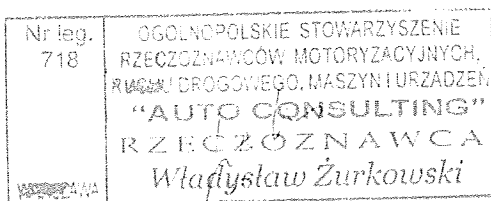 Nr leg.
718
OGOLNOPOLSKIE STOWARZYSZENIE
RZECZOZNAWCÓW MOTORYZACYJNYCH,
RUCHU DROGOWEGO, MASZYN I URZĄDZEŃ
"AUTO CONSULTING"
RZECZOZNAWCA
Władysław Żurkowski